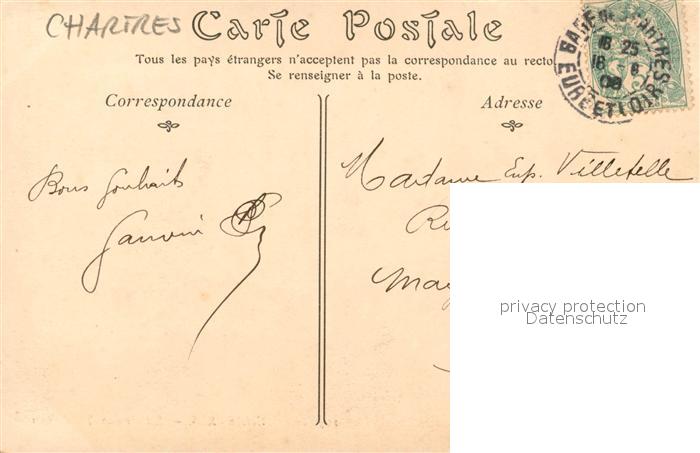 CHARTRES
Carte Postale
Tous les pays étrangers n'acceptent pas la correspondance au recto.
Se renseigner à la poste.
GARE DE CHARTRES
18 25
16 8
08
EURE ET LOIR
Correspondance
Adresse
Bons Souhaits
Madame Eup. Villetelle
privacy protection
Datenschutz